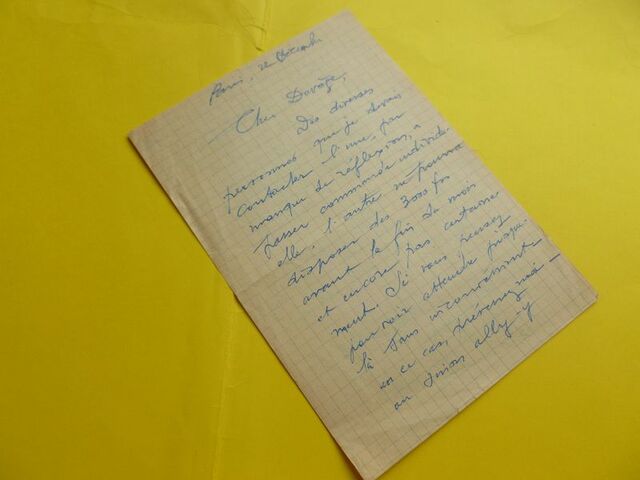 Paris, 22 Décembre
Cher Davoze,
Des diverses
personnes que je devais
contacter l'une, par
manque de réflexion, a
passer commande individu-
elle, l'autre ne pourra
disposer des 3000 frs
avant la fin du mois
et encore pas certaine
ment. Si vous pensez
pouvoir attendre jusque
là sans inconvénient
en ce cas, prévenez moi —
ou sinon allez-y